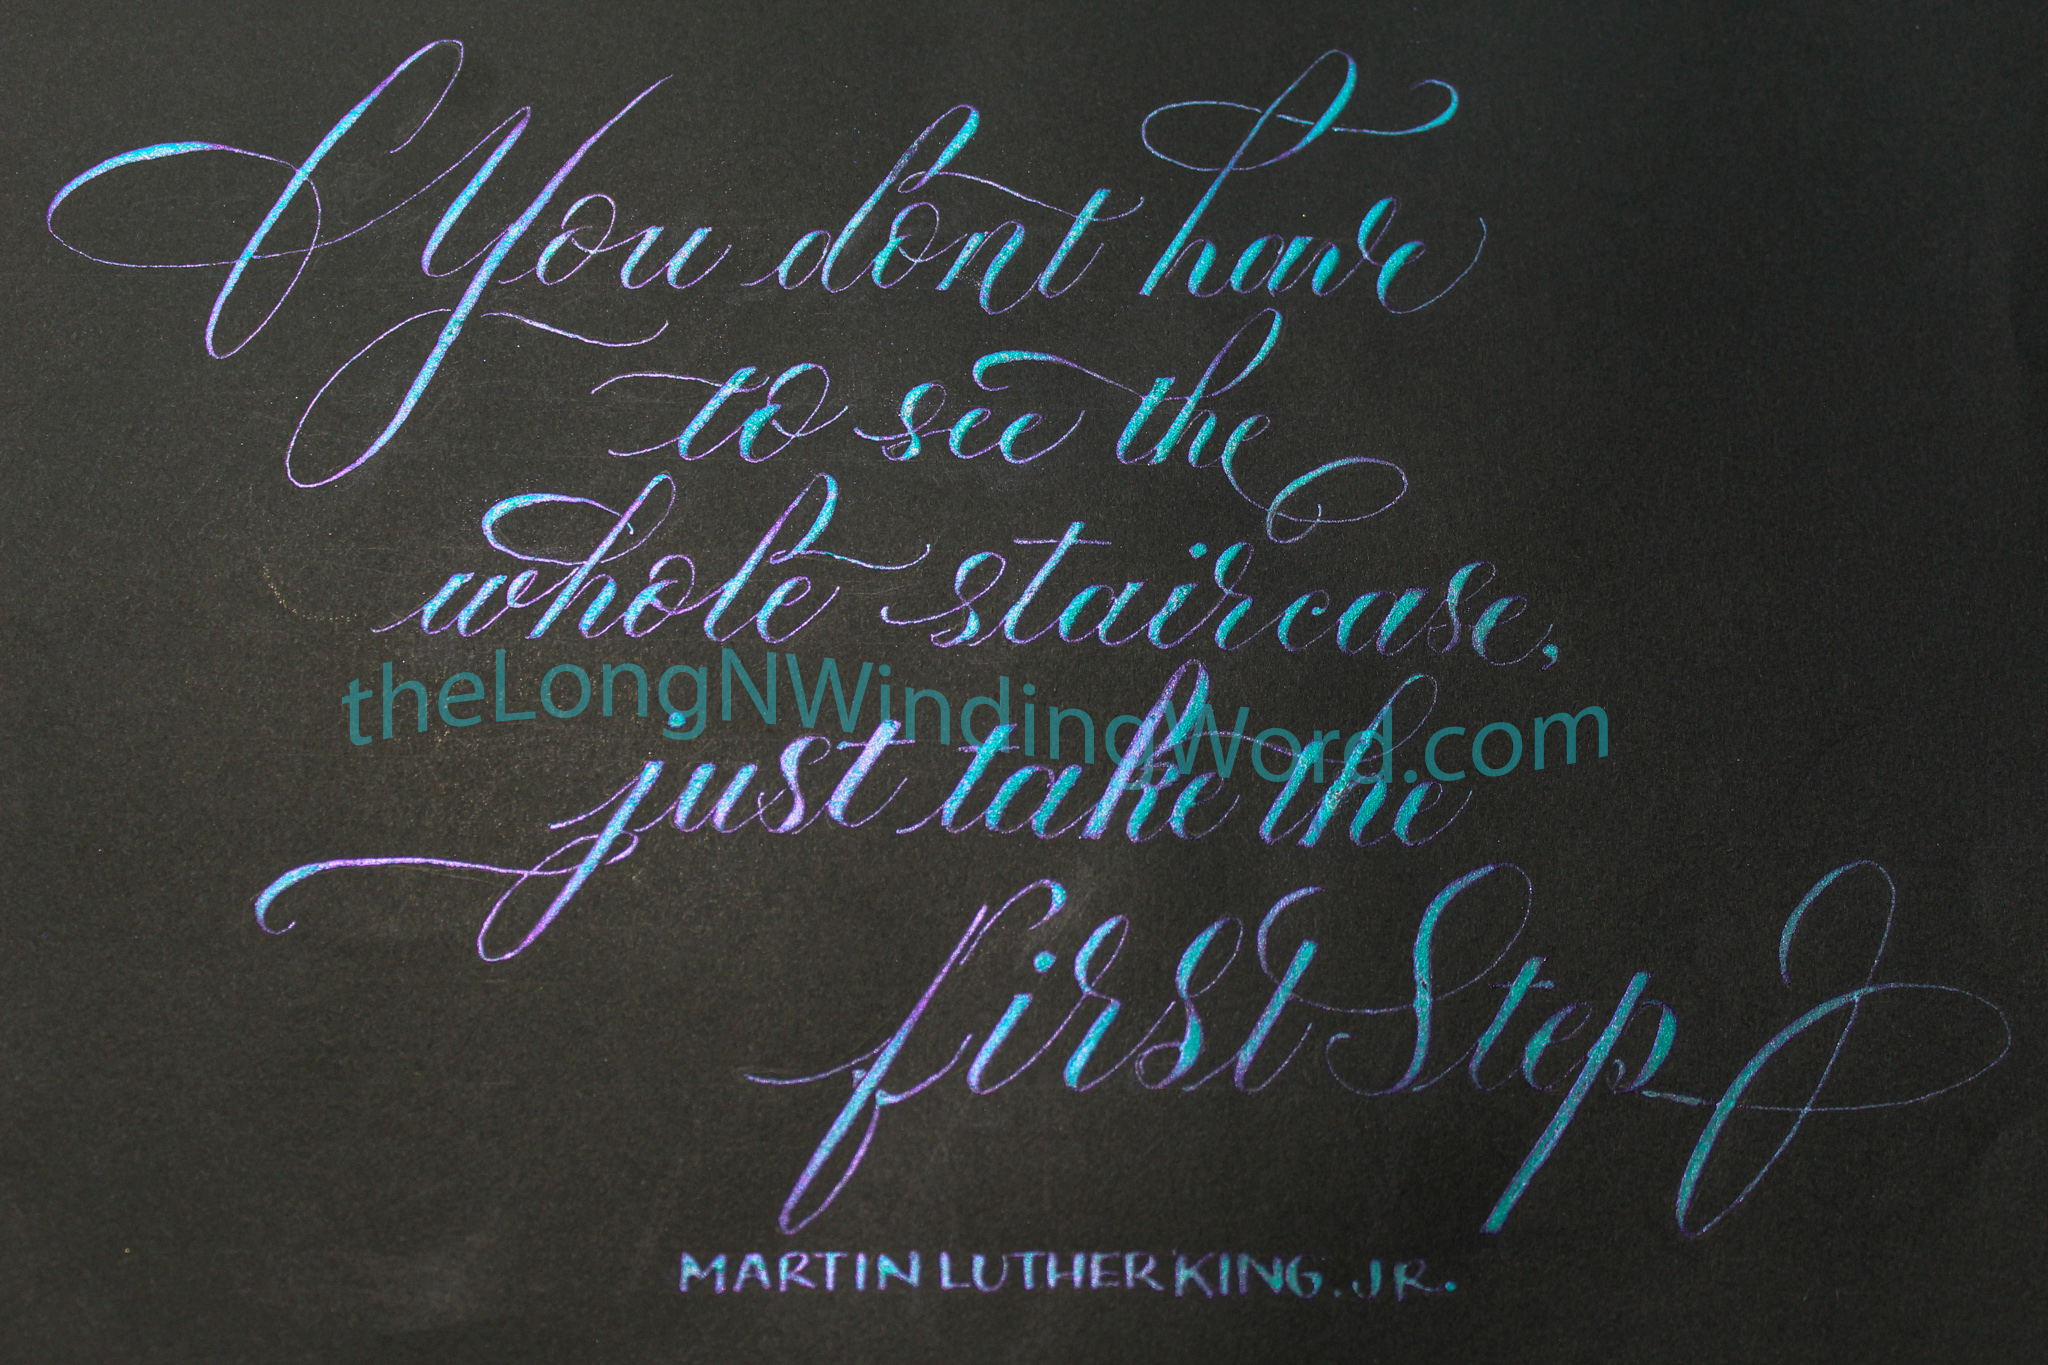 You dont have
to see the
whole staircase,
theLongNWindingWord.com
just take the
first Step
MARTIN LUTHER KING. JR.